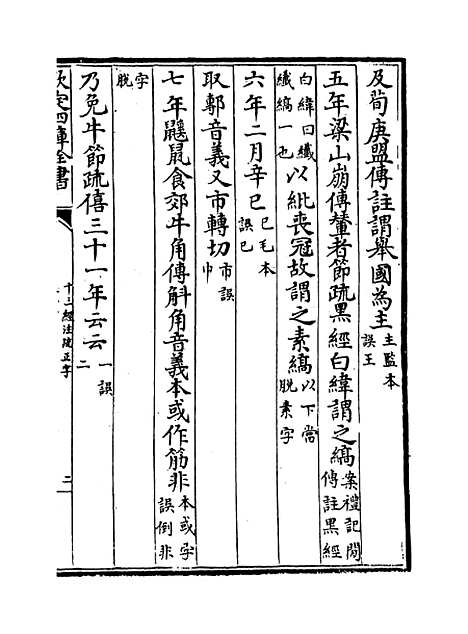 及荀庚盟傳註謂舉國為主主監本誤王
五年梁山崩傳輦者節疏黑經白緯謂之縞案禮記間傳註黑經
白緯曰纖纖縞一也以紕喪冠故謂之素縞以下當脫素字
六年二月辛巳巳毛本誤已
取鄟音義又市轉切市誤巾
七年鼷鼠食郊牛角傳斛角音義本或作筋非本或字誤倒非
字脫
乃免牛節疏僖三十一年云云一誤二
欽定四庫全書
十三經注疏正字
二